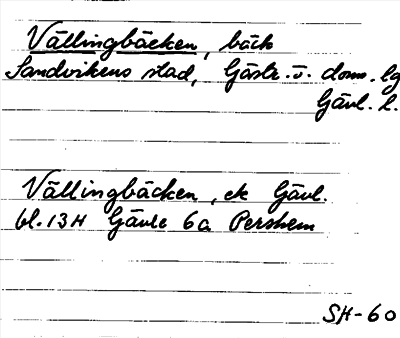 Vällingbäcken, bäck
Sandvikens stad, Gästr. ö. doms. lg
Gävl. l.
Vällingbäcken, ek Gävl.
bl. 13H Gävle 6a Pershem
SH-60